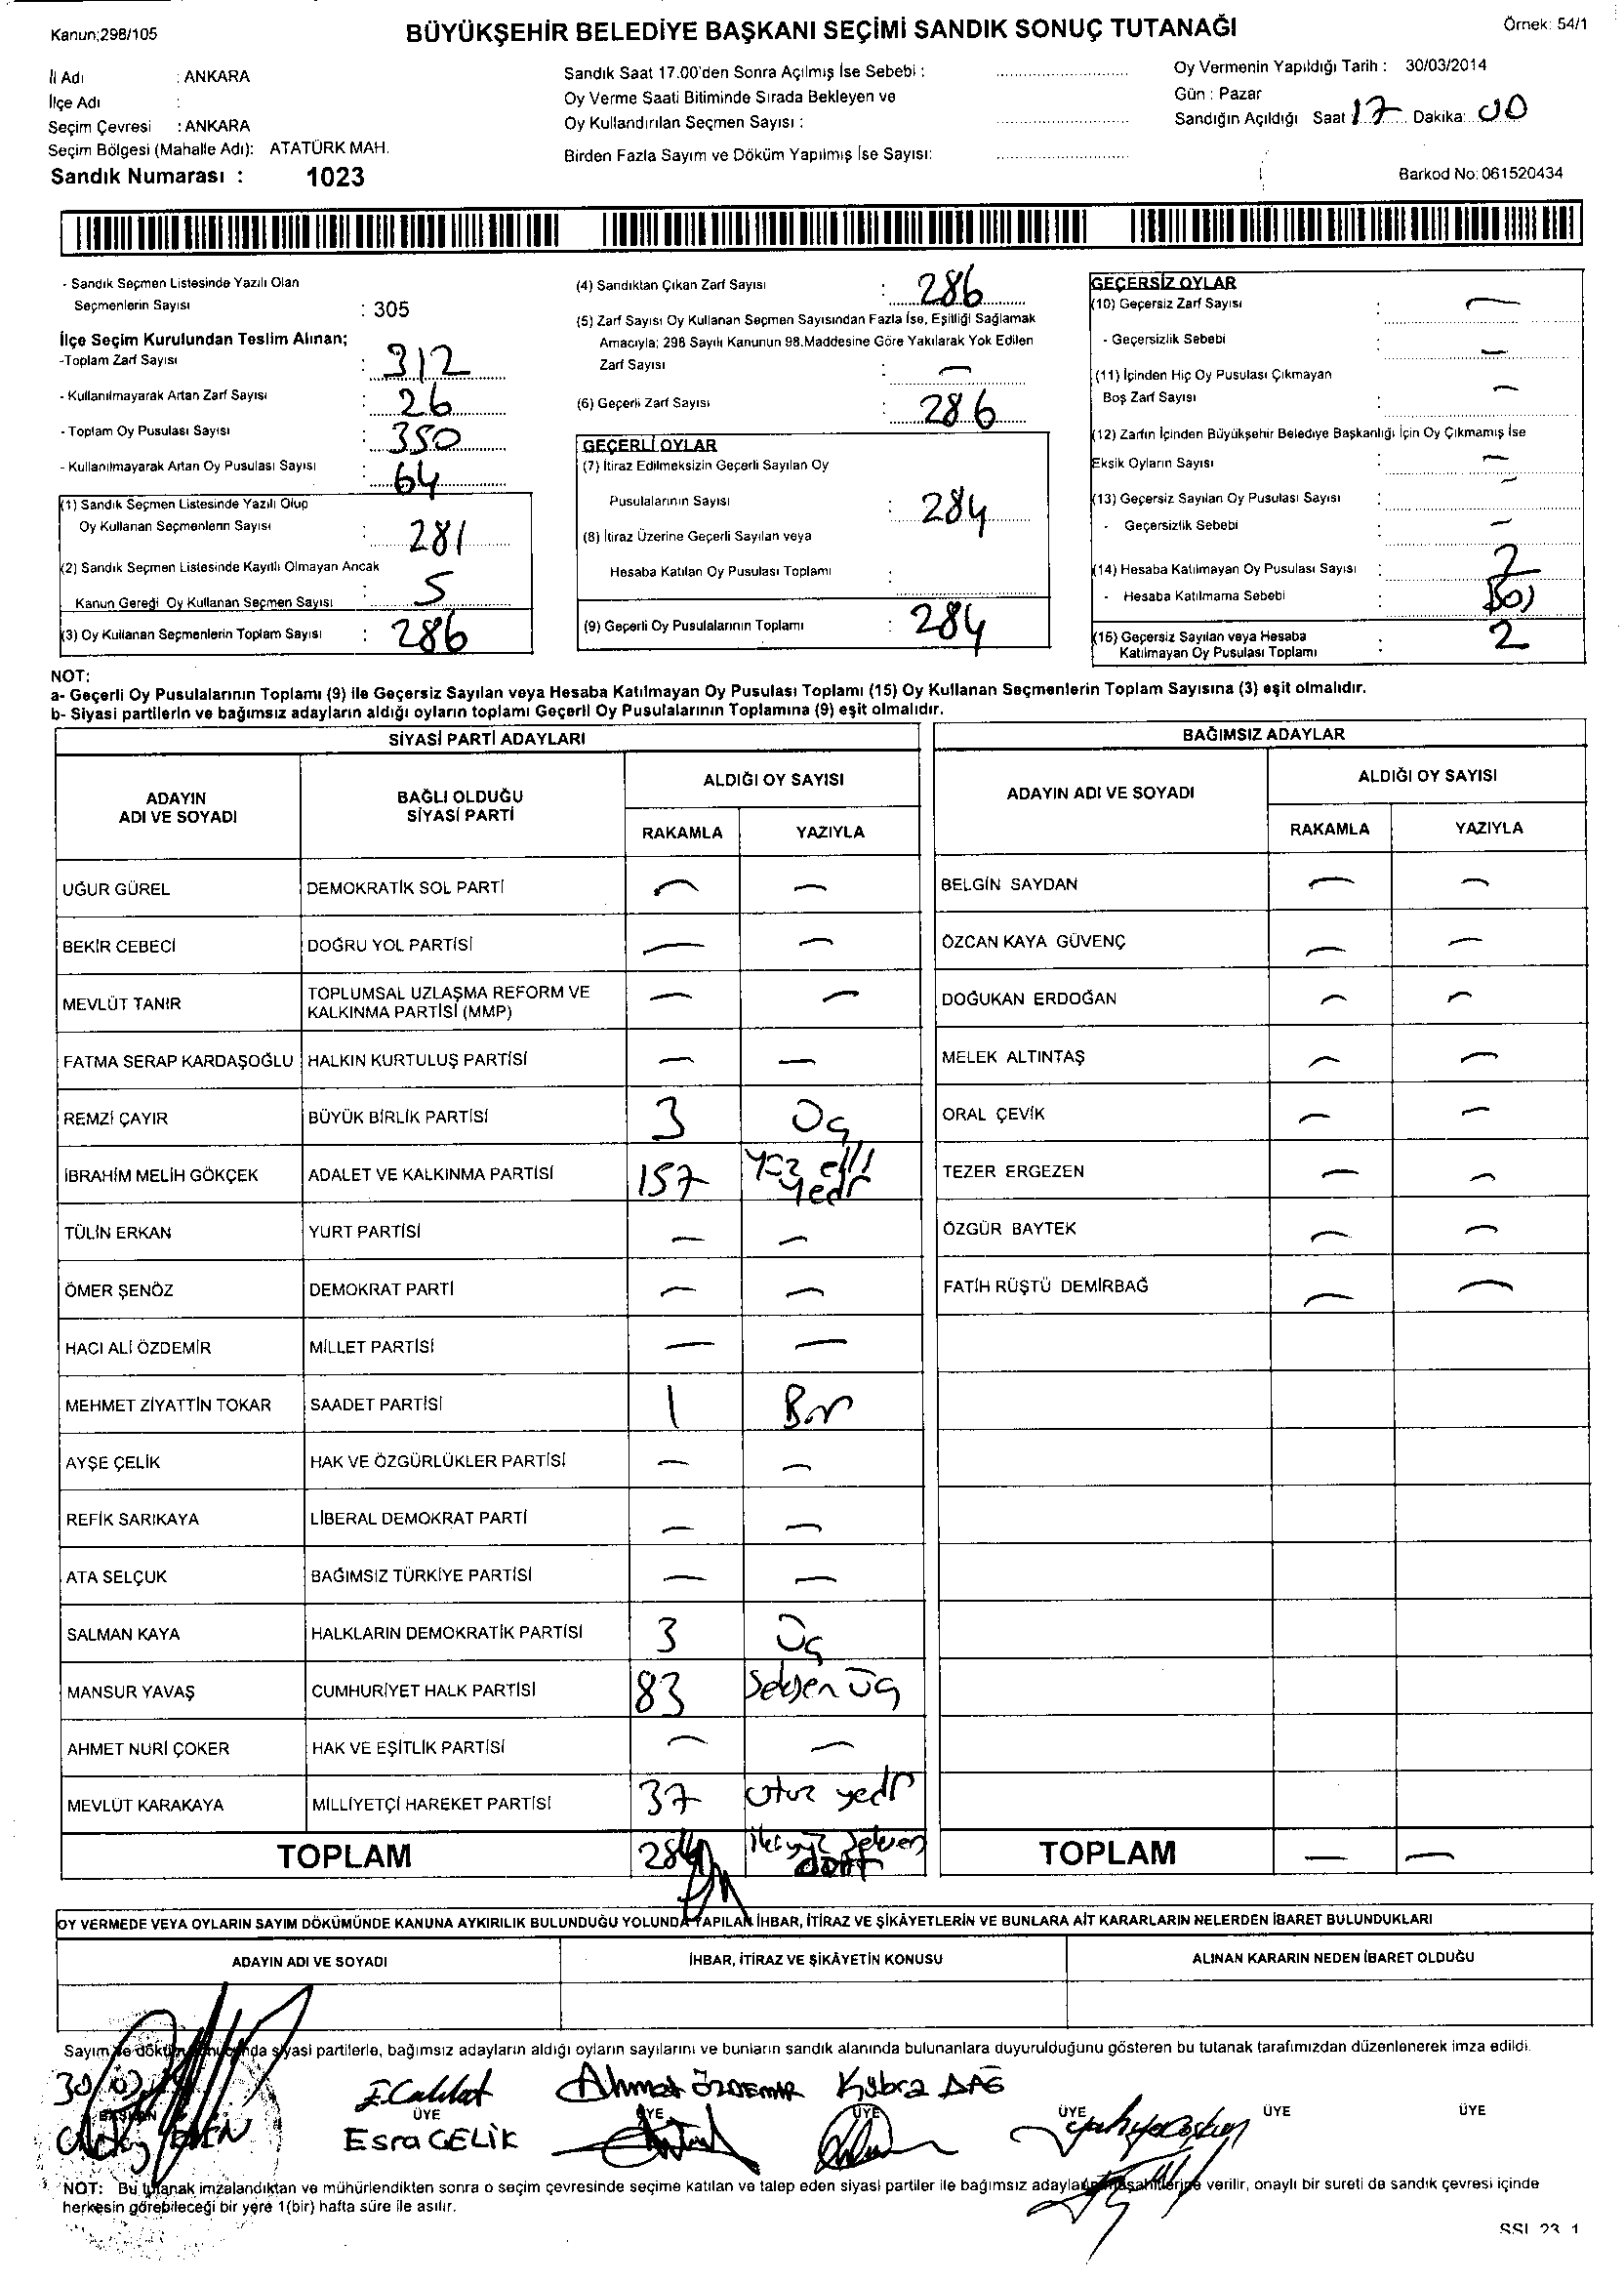 Kanun;298/105
BÜYÜKŞEHİR BELEDİYE BAŞKANI SEÇİMİ SANDIK SONUÇ TUTANAĞI
Örnek: 54/1
İl Adı : ANKARA
İlçe Adı :
Seçim Çevresi : ANKARA
Seçim Bölgesi (Mahalle Adı): ATATÜRK MAH.
Sandık Numarası : 1023
Sandık Saat 17.00'den Sonra Açılmış İse Sebebi :
Oy Verme Saati Bitiminde Sırada Bekleyen ve
Oy Kullandırılan Seçmen Sayısı :
Birden Fazla Sayım ve Döküm Yapılmış İse Sayısı:
Oy Vermenin Yapıldığı Tarih : 30/03/2014
Gün : Pazar
Sandığın Açıldığı Saat 17 Dakika: 00
Barkod No: 061520434
- Sandık Seçmen Listesinde Yazılı Olan
Seçmenlerin Sayısı : 305
İlçe Seçim Kurulundan Teslim Alınan;
-Toplam Zarf Sayısı : 312
- Kullanılmayarak Artan Zarf Sayısı : 26
- Toplam Oy Pusulası Sayısı : 350
- Kullanılmayarak Artan Oy Pusulası Sayısı : 64
(1) Sandık Seçmen Listesinde Yazılı Olup
Oy Kullanan Seçmenlerin Sayısı : 281
(2) Sandık Seçmen Listesinde Kayıtlı Olmayan Ancak
Kanun Gereği Oy Kullanan Seçmen Sayısı : 5
(3) Oy Kullanan Seçmenlerin Toplam Sayısı : 286
(4) Sandıktan Çıkan Zarf Sayısı : 286
(5) Zarf Sayısı Oy Kullanan Seçmen Sayısından Fazla İse, Eşitliği Sağlamak
Amacıyla; 298 Sayılı Kanunun 98.Maddesine Göre Yakılarak Yok Edilen
Zarf Sayısı : —
(6) Geçerli Zarf Sayısı : 286
GEÇERLİ OYLAR
(7) İtiraz Edilmeksizin Geçerli Sayılan Oy
Pusulalarının Sayısı : 284
(8) İtiraz Üzerine Geçerli Sayılan veya
Hesaba Katılan Oy Pusulası Toplamı :
(9) Geçerli Oy Pusulalarının Toplamı : 284
GEÇERSİZ OYLAR
(10) Geçersiz Zarf Sayısı : —
- Geçersizlik Sebebi : —
(11) İçinden Hiç Oy Pusulası Çıkmayan
Boş Zarf Sayısı : —
(12) Zarfın İçinden Büyükşehir Belediye Başkanlığı İçin Oy Çıkmamış İse
Eksik Oyların Sayısı : —
(13) Geçersiz Sayılan Oy Pusulası Sayısı : —
- Geçersizlik Sebebi : —
(14) Hesaba Katılmayan Oy Pusulası Sayısı : 2
- Hesaba Katılmama Sebebi : Boş
(15) Geçersiz Sayılan veya Hesaba : 2
Katılmayan Oy Pusulası Toplamı
NOT:
a- Geçerli Oy Pusulalarının Toplamı (9) ile Geçersiz Sayılan veya Hesaba Katılmayan Oy Pusulası Toplamı (15) Oy Kullanan Seçmenlerin Toplam Sayısına (3) eşit olmalıdır.
b- Siyasi partilerin ve bağımsız adayların aldığı oyların toplamı Geçerli Oy Pusulalarının Toplamına (9) eşit olmalıdır.
SİYASİ PARTİ ADAYLARI
ADAYIN ADI VE SOYADI
BAĞLI OLDUĞU SİYASİ PARTİ
ALDIĞI OY SAYISI
RAKAMLA YAZIYLA
UĞUR GÜREL DEMOKRATİK SOL PARTİ — —
BEKİR CEBECİ DOĞRU YOL PARTİSİ — —
MEVLÜT TANIR TOPLUMSAL UZLAŞMA REFORM VE KALKINMA PARTİSİ (MMP) — —
FATMA SERAP KARDAŞOĞLU HALKIN KURTULUŞ PARTİSİ — —
REMZİ ÇAYIR BÜYÜK BİRLİK PARTİSİ 3 Üç
İBRAHİM MELİH GÖKÇEK ADALET VE KALKINMA PARTİSİ 157 Yüz elli yedi
TÜLİN ERKAN YURT PARTİSİ — —
ÖMER ŞENÖZ DEMOKRAT PARTİ — —
HACI ALİ ÖZDEMİR MİLLET PARTİSİ — —
MEHMET ZİYATTİN TOKAR SAADET PARTİSİ 1 Bir
AYŞE ÇELİK HAK VE ÖZGÜRLÜKLER PARTİSİ — —
REFİK SARIKAYA LİBERAL DEMOKRAT PARTİ — —
ATA SELÇUK BAĞIMSIZ TÜRKİYE PARTİSİ — —
SALMAN KAYA HALKLARIN DEMOKRATİK PARTİSİ 3 Üç
MANSUR YAVAŞ CUMHURİYET HALK PARTİSİ 83 Seksen üç
AHMET NURİ ÇOKER HAK VE EŞİTLİK PARTİSİ — —
MEVLÜT KARAKAYA MİLLİYETÇİ HAREKET PARTİSİ 37 otuz yedi
TOPLAM 284 ikiyüz seksen dört
BAĞIMSIZ ADAYLAR
ADAYIN ADI VE SOYADI
ALDIĞI OY SAYISI
RAKAMLA YAZIYLA
BELGİN SAYDAN — —
ÖZCAN KAYA GÜVENÇ — —
DOĞUKAN ERDOĞAN — —
MELEK ALTINTAŞ — —
ORAL ÇEVİK — —
TEZER ERGEZEN — —
ÖZGÜR BAYTEK — —
FATİH RÜŞTÜ DEMİRBAĞ — —
TOPLAM — —
OY VERMEDE VEYA OYLARIN SAYIM DÖKÜMÜNDE KANUNA AYKIRILIK BULUNDUĞU YOLUNDA YAPILAN İHBAR, İTİRAZ VE ŞİKÂYETLERİN VE BUNLARA AİT KARARLARIN NELERDEN İBARET BULUNDUKLARI
ADAYIN ADI VE SOYADI İHBAR, İTİRAZ VE ŞİKÂYETİN KONUSU ALINAN KARARIN NEDEN İBARET OLDUĞU
Sayım ve döküm sonucunda siyasi partilerle, bağımsız adayların aldığı oyların sayılarını ve bunların sandık alanında bulunanlara duyurulduğunu gösteren bu tutanak tarafımızdan düzenlenerek imza edildi.
30/03
Ahmet ÖZDEMİR Kübra DAĞ
BAŞKAN ÜYE ÜYE ÜYE ÜYE ÜYE ÜYE
Esra ÇELİK
NOT: Bu tutanak imzalandıktan ve mühürlendikten sonra o seçim çevresinde seçime katılan ve talep eden siyasi partiler ile bağımsız adayların müşahitlerine verilir, onaylı bir sureti de sandık çevresi içinde
herkesin görebileceği bir yere 1(bir) hafta süre ile asılır.